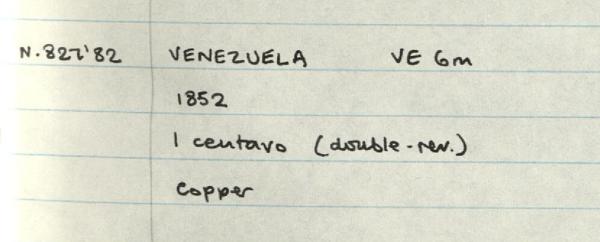 N.827'82 VENEZUELA VE 6m
1852
1 centavo (double-rev.)
Copper